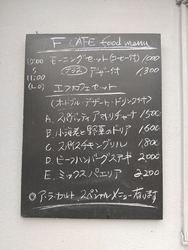 F CAFE food menu
9:00 モーニングセット(コーヒー付) 1000
〜 プラス デザート付 1300
11:00
(L.O) エフカフェセット
(オードブル・デザート・ドリンク付)
A. スパゲッティ アオリオチャード 1500
B. 小海老と野菜のドリア 1600
C. スモチキングリル 1800
D. ビーフハンバーグステーキ 2000
E. ミックスパエリア 2200
◎ ア・ラ・カルト スペシャルメニュー有ります